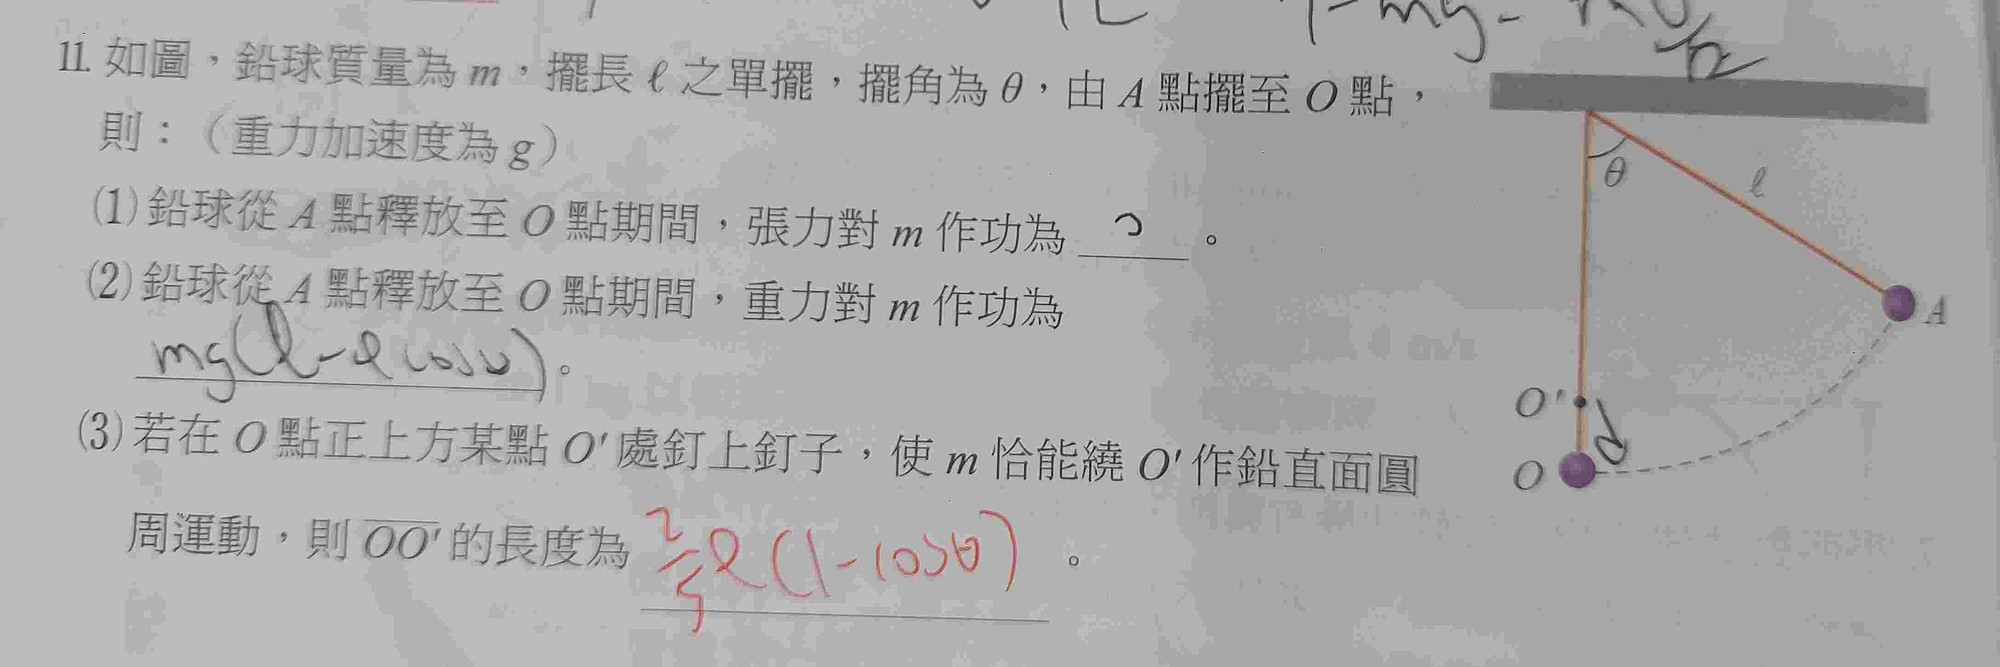 11. 如圖，鉛球質量為 m，擺長 ℓ 之單擺，擺角為 θ，由 A 點擺至 O 點，
則：（重力加速度為 g）
(1) 鉛球從 A 點釋放至 O 點期間，張力對 m 作功為 0 。
(2) 鉛球從 A 點釋放至 O 點期間，重力對 m 作功為
mg(ℓ-ℓcosθ)。
(3) 若在 O 點正上方某點 O′ 處釘上釘子，使 m 恰能繞 O′ 作鉛直面圓
周運動，則 OO′ 的長度為 2/5 ℓ(1-cosθ) 。
θ
ℓ
A
O′
d
O